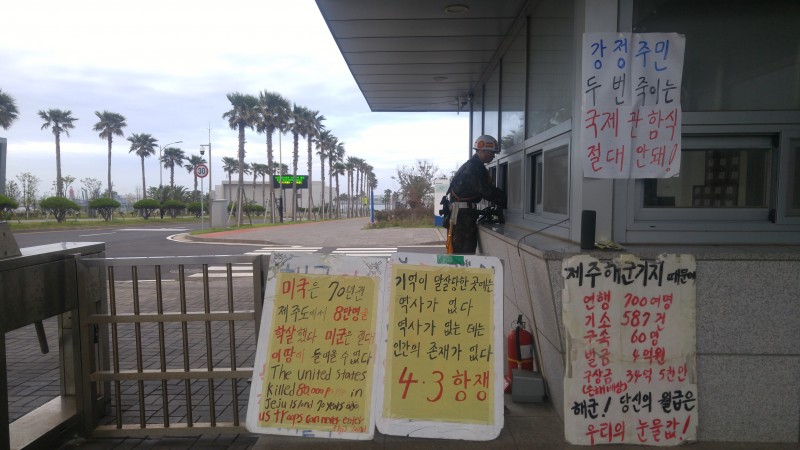 강정주민
두 번 죽이는
국제관함식
절대 안돼!
30
미국은 70년전
제주도에서 8만명을
학살했다 미군은 한다
이땅에 들어올 수 없다
The united states
killed 80,000 in
Jeju Island 70 years ago
us troops can never enter
기억이 말살당한 곳에는
역사가 없다
역사가 없는 데는
인간의 존재가 없다
4·3 항쟁
제주해군기지 때문에
연행 700여명
기소 587건
구속 60명
벌금 4억원
구상금 34억 5천만
해군! 당신의 월급은
우리의 눈물값!